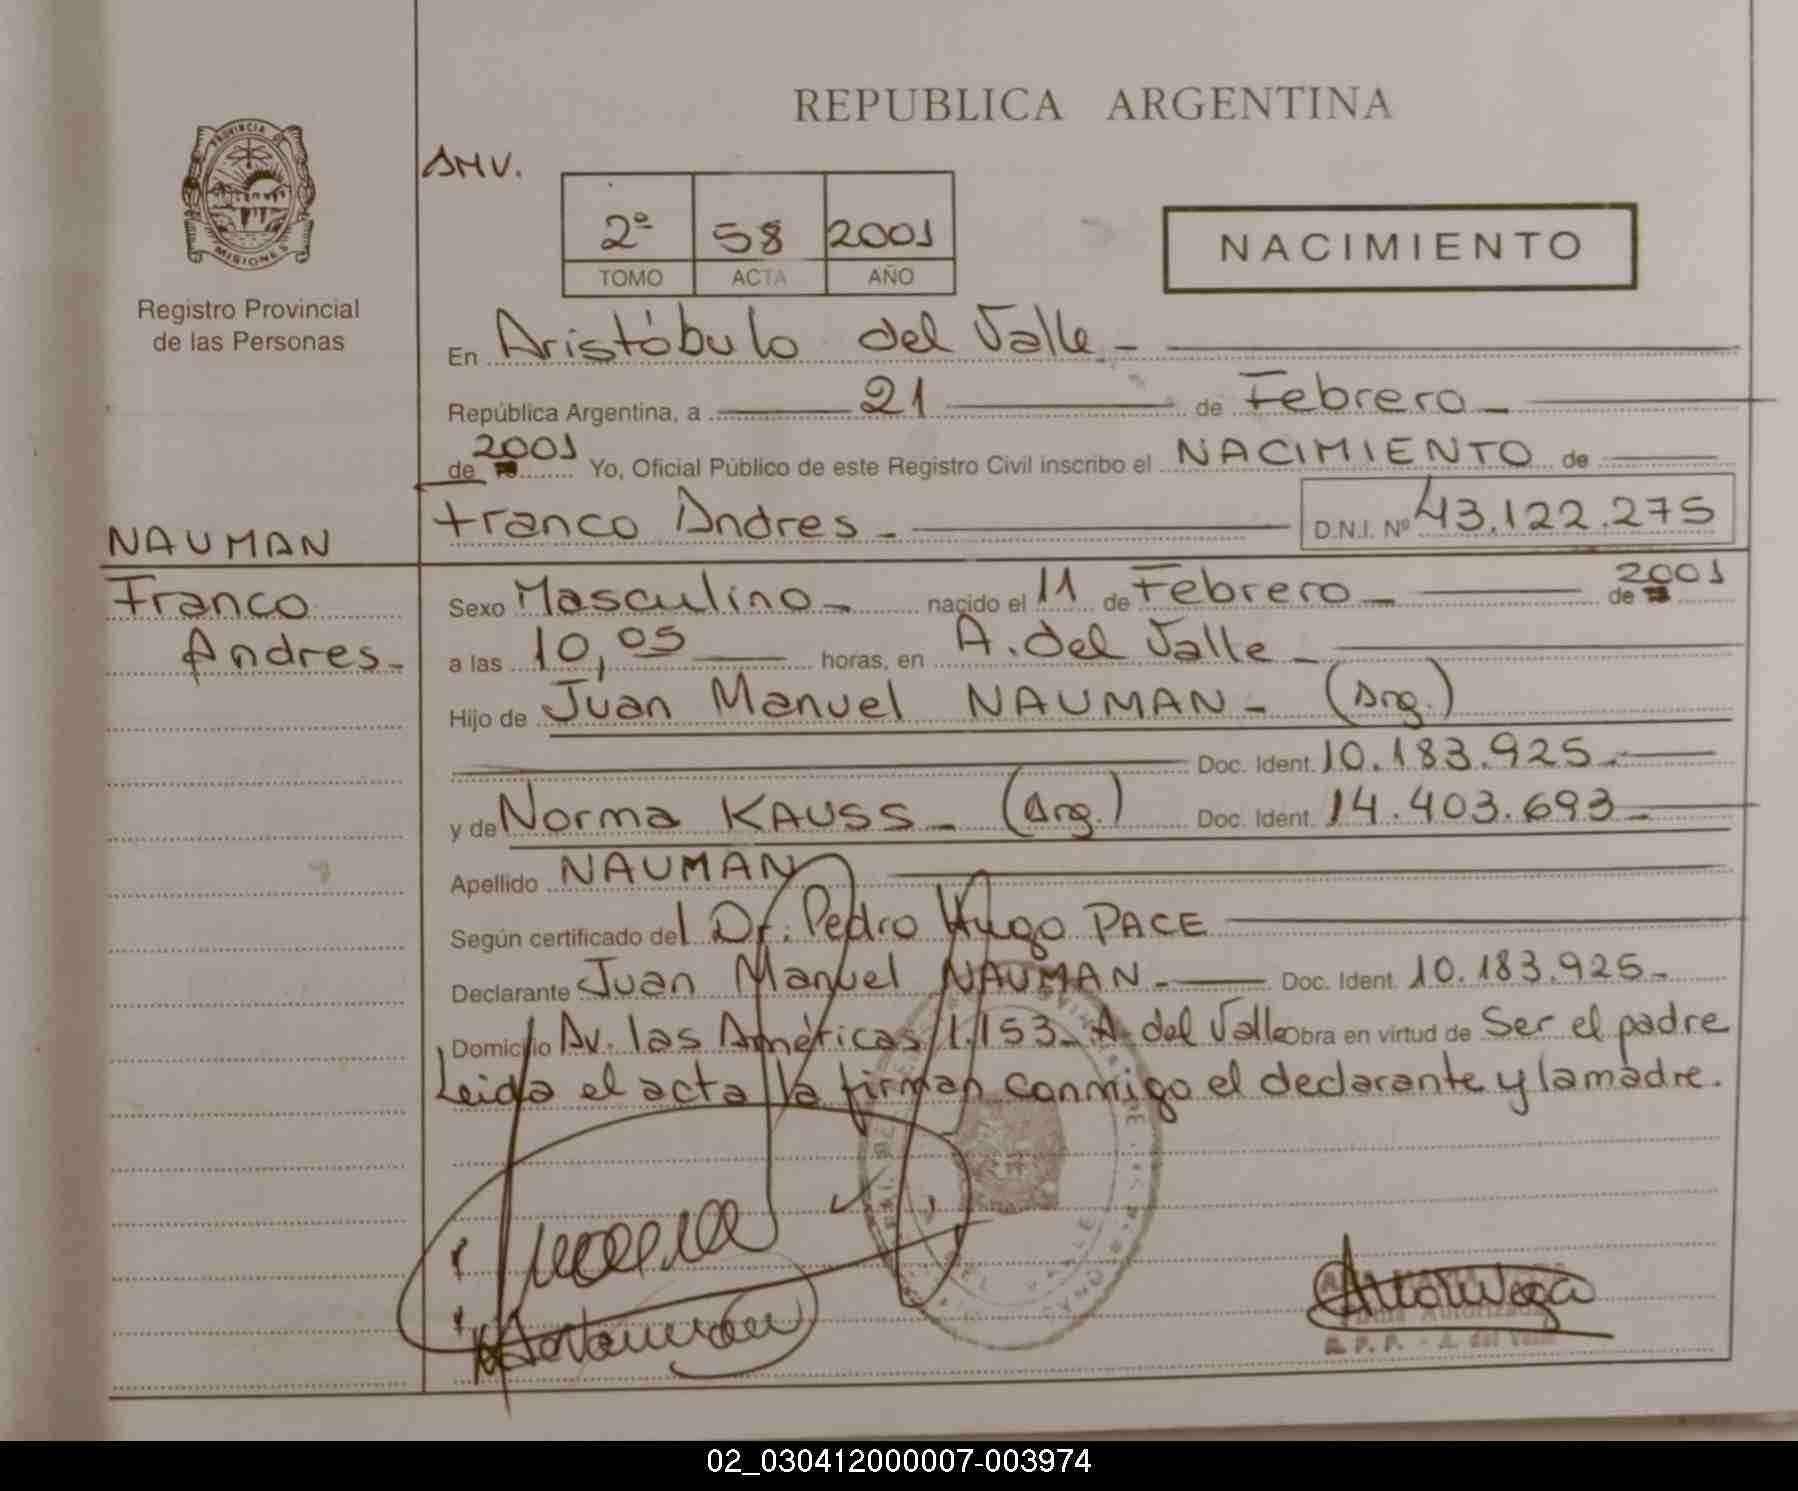 REPUBLICA ARGENTINA
PROVINCIA DE
MISIONES
Registro Provincial
de las Personas
AMV.
2º 58 2001
TOMO ACTA AÑO
NACIMIENTO
En Aristóbulo del Valle -
República Argentina, a 21 de Febrero -
de 2001 Yo, Oficial Público de este Registro Civil inscribo el NACIMIENTO de
Franco Andres - D.N.I. Nº 43.122.275
NAUMAN
Franco
Andres -
Sexo Masculino - nacido el 11 de Febrero - de 2001
a las 10,05 horas, en A. del Valle -
Hijo de Juan Manuel NAUMAN - (Arg.)
Doc. Ident. 10.183.925 -
y de Norma KAUSS - (Arg.) Doc. Ident. 14.403.693 -
Apellido NAUMAN
Según certificado del Dr. Pedro Hugo PACE
Declarante Juan Manuel NAUMAN - Doc. Ident. 10.183.925 -
Domicilio Av. las Américas 1.153 - A. del Valle Obra en virtud de Ser el padre
Leida el acta la firman conmigo el declarante y la madre.
Firma Autorizada
R. P. P. - A. del Valle
02_030412000007-003974